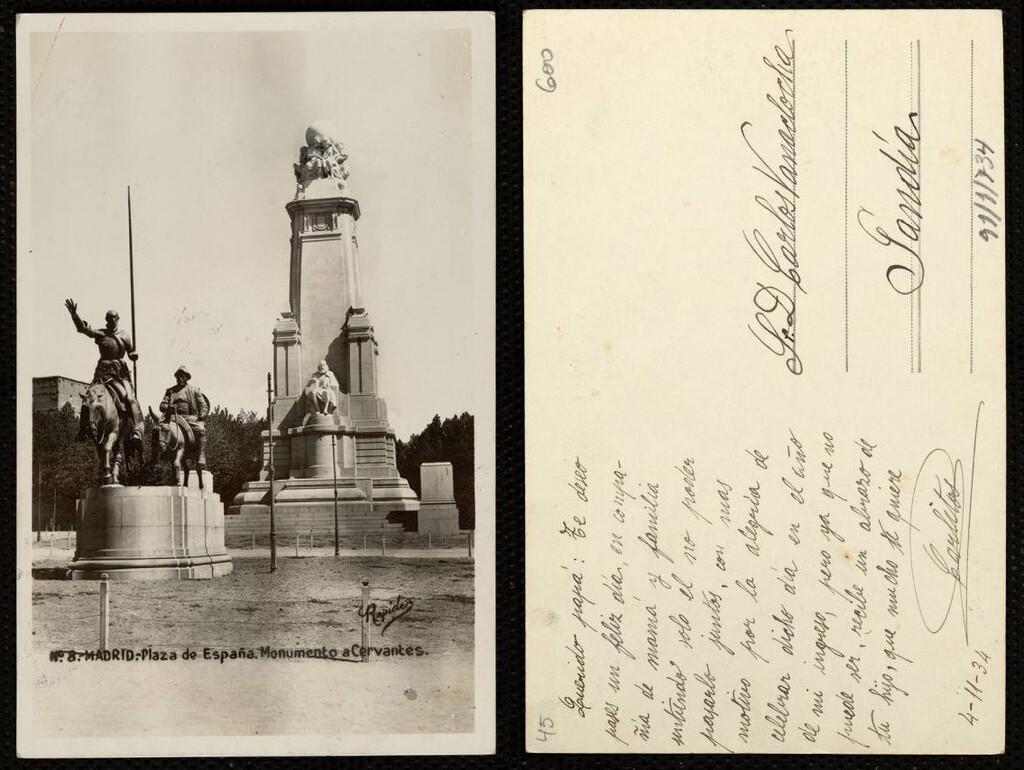 Rapide
Nº 8.-MADRID.-Plaza de España. Monumento a Cervantes.
600
45
Querido papá: Te deseo
pases un feliz día, en compa-
ñía de mamá y familia
sintiendo solo el no poder
pasarlo juntos, con mas
motivo por la alegria de
celebrar dicho día en el año
de mi ingreso, pero ya que no
puede ser, recibe un abrazo de
tu hijo, que mucho te quiere
Carlitos
4-11-34
Sr. D. Carlos
Gandía